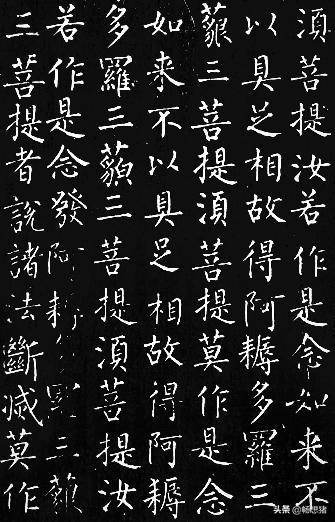 須菩提汝若作是念如来不
以具足相故得阿耨多羅三
藐三菩提須菩提莫作是念
如来不以具足相故得阿耨
多羅三藐三菩提須菩提汝
若作是念發阿耨多羅三藐
三菩提者說諸法斷滅莫作
头条 @畅想猪